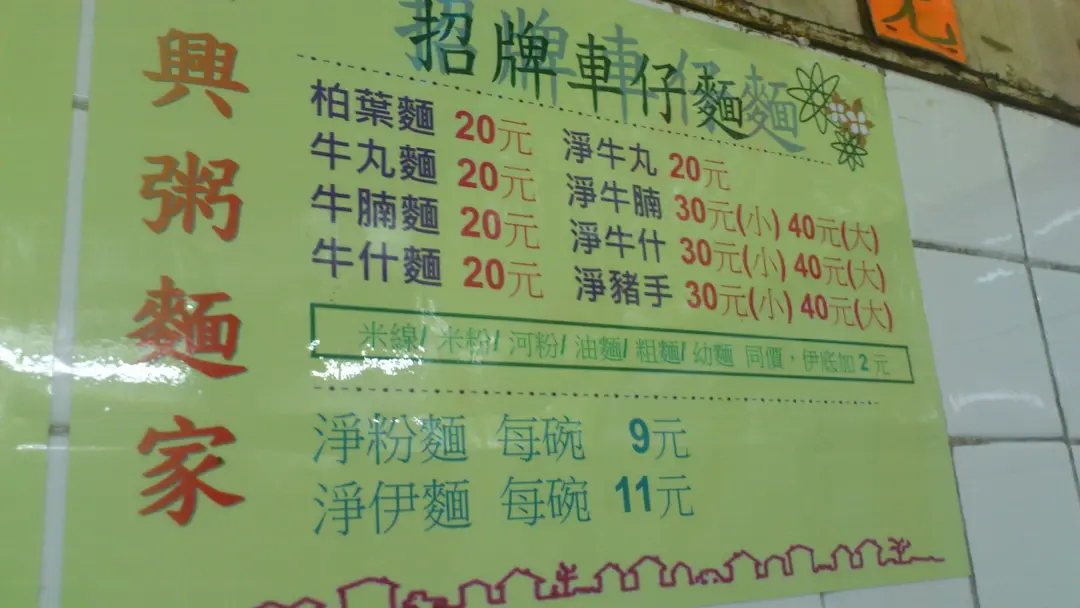 興粥麵家
招牌車仔麵
柏葉麵 20元 淨牛丸 20元
牛丸麵 20元 淨牛腩 30元(小) 40元(大)
牛腩麵 20元 淨牛什 30元(小) 40元(大)
牛什麵 20元 淨豬手 30元(小) 40元(大)
米線/ 米粉/ 河粉/ 油麵/ 粗麵/ 幼麵 同價，伊底加2元
淨粉麵 每碗 9元
淨伊麵 每碗 11元